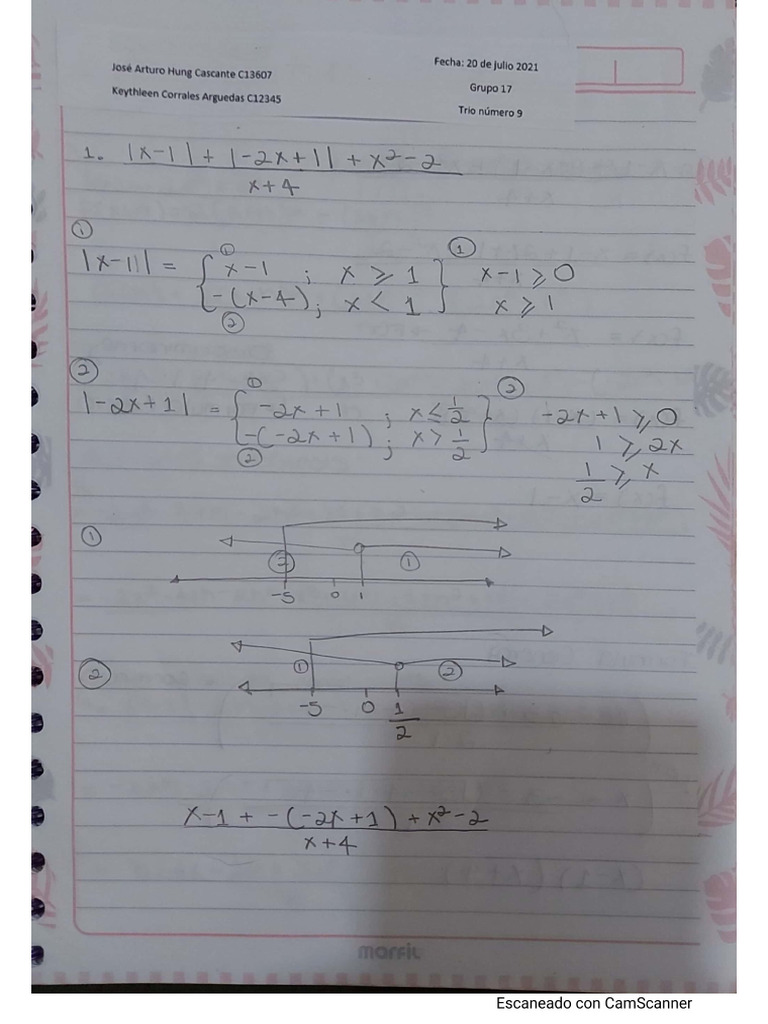 José Arturo Hung Cascante C13607
Keythleen Corrales Arguedas C12345
Fecha: 20 de julio 2021
Grupo 17
Trio número 9
1. |x-1| + |-2x+1| + x²-2
x+4
①
|x-1| = { ① x-1 ; x ⩾ 1 } ① x-1 ⩾ 0
{ -(x-4); x < 1 } x ⩾ 1
②
②
|-2x+1| = { ① -2x+1 ; x ⩽ 1/2 } ② -2x+1 ⩾ 0
{ -(-2x+1); x > 1/2 } 1 ⩾ 2x
② 1/2 ⩾ x
①
② ①
-5 0 1
②
① ②
-5 0 1/2
x-1 + -(-2x+1) + x²-2
x+4
marfil
Escaneado con CamScanner